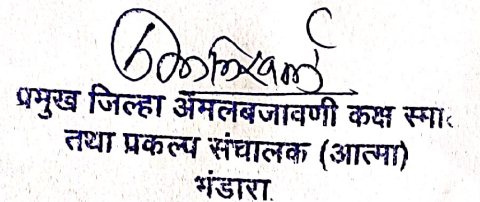 प्रमुख जिल्हा अंमलबजावणी कक्ष स्मा
तथा प्रकल्प संचालक (आत्मा)
भंडारा.